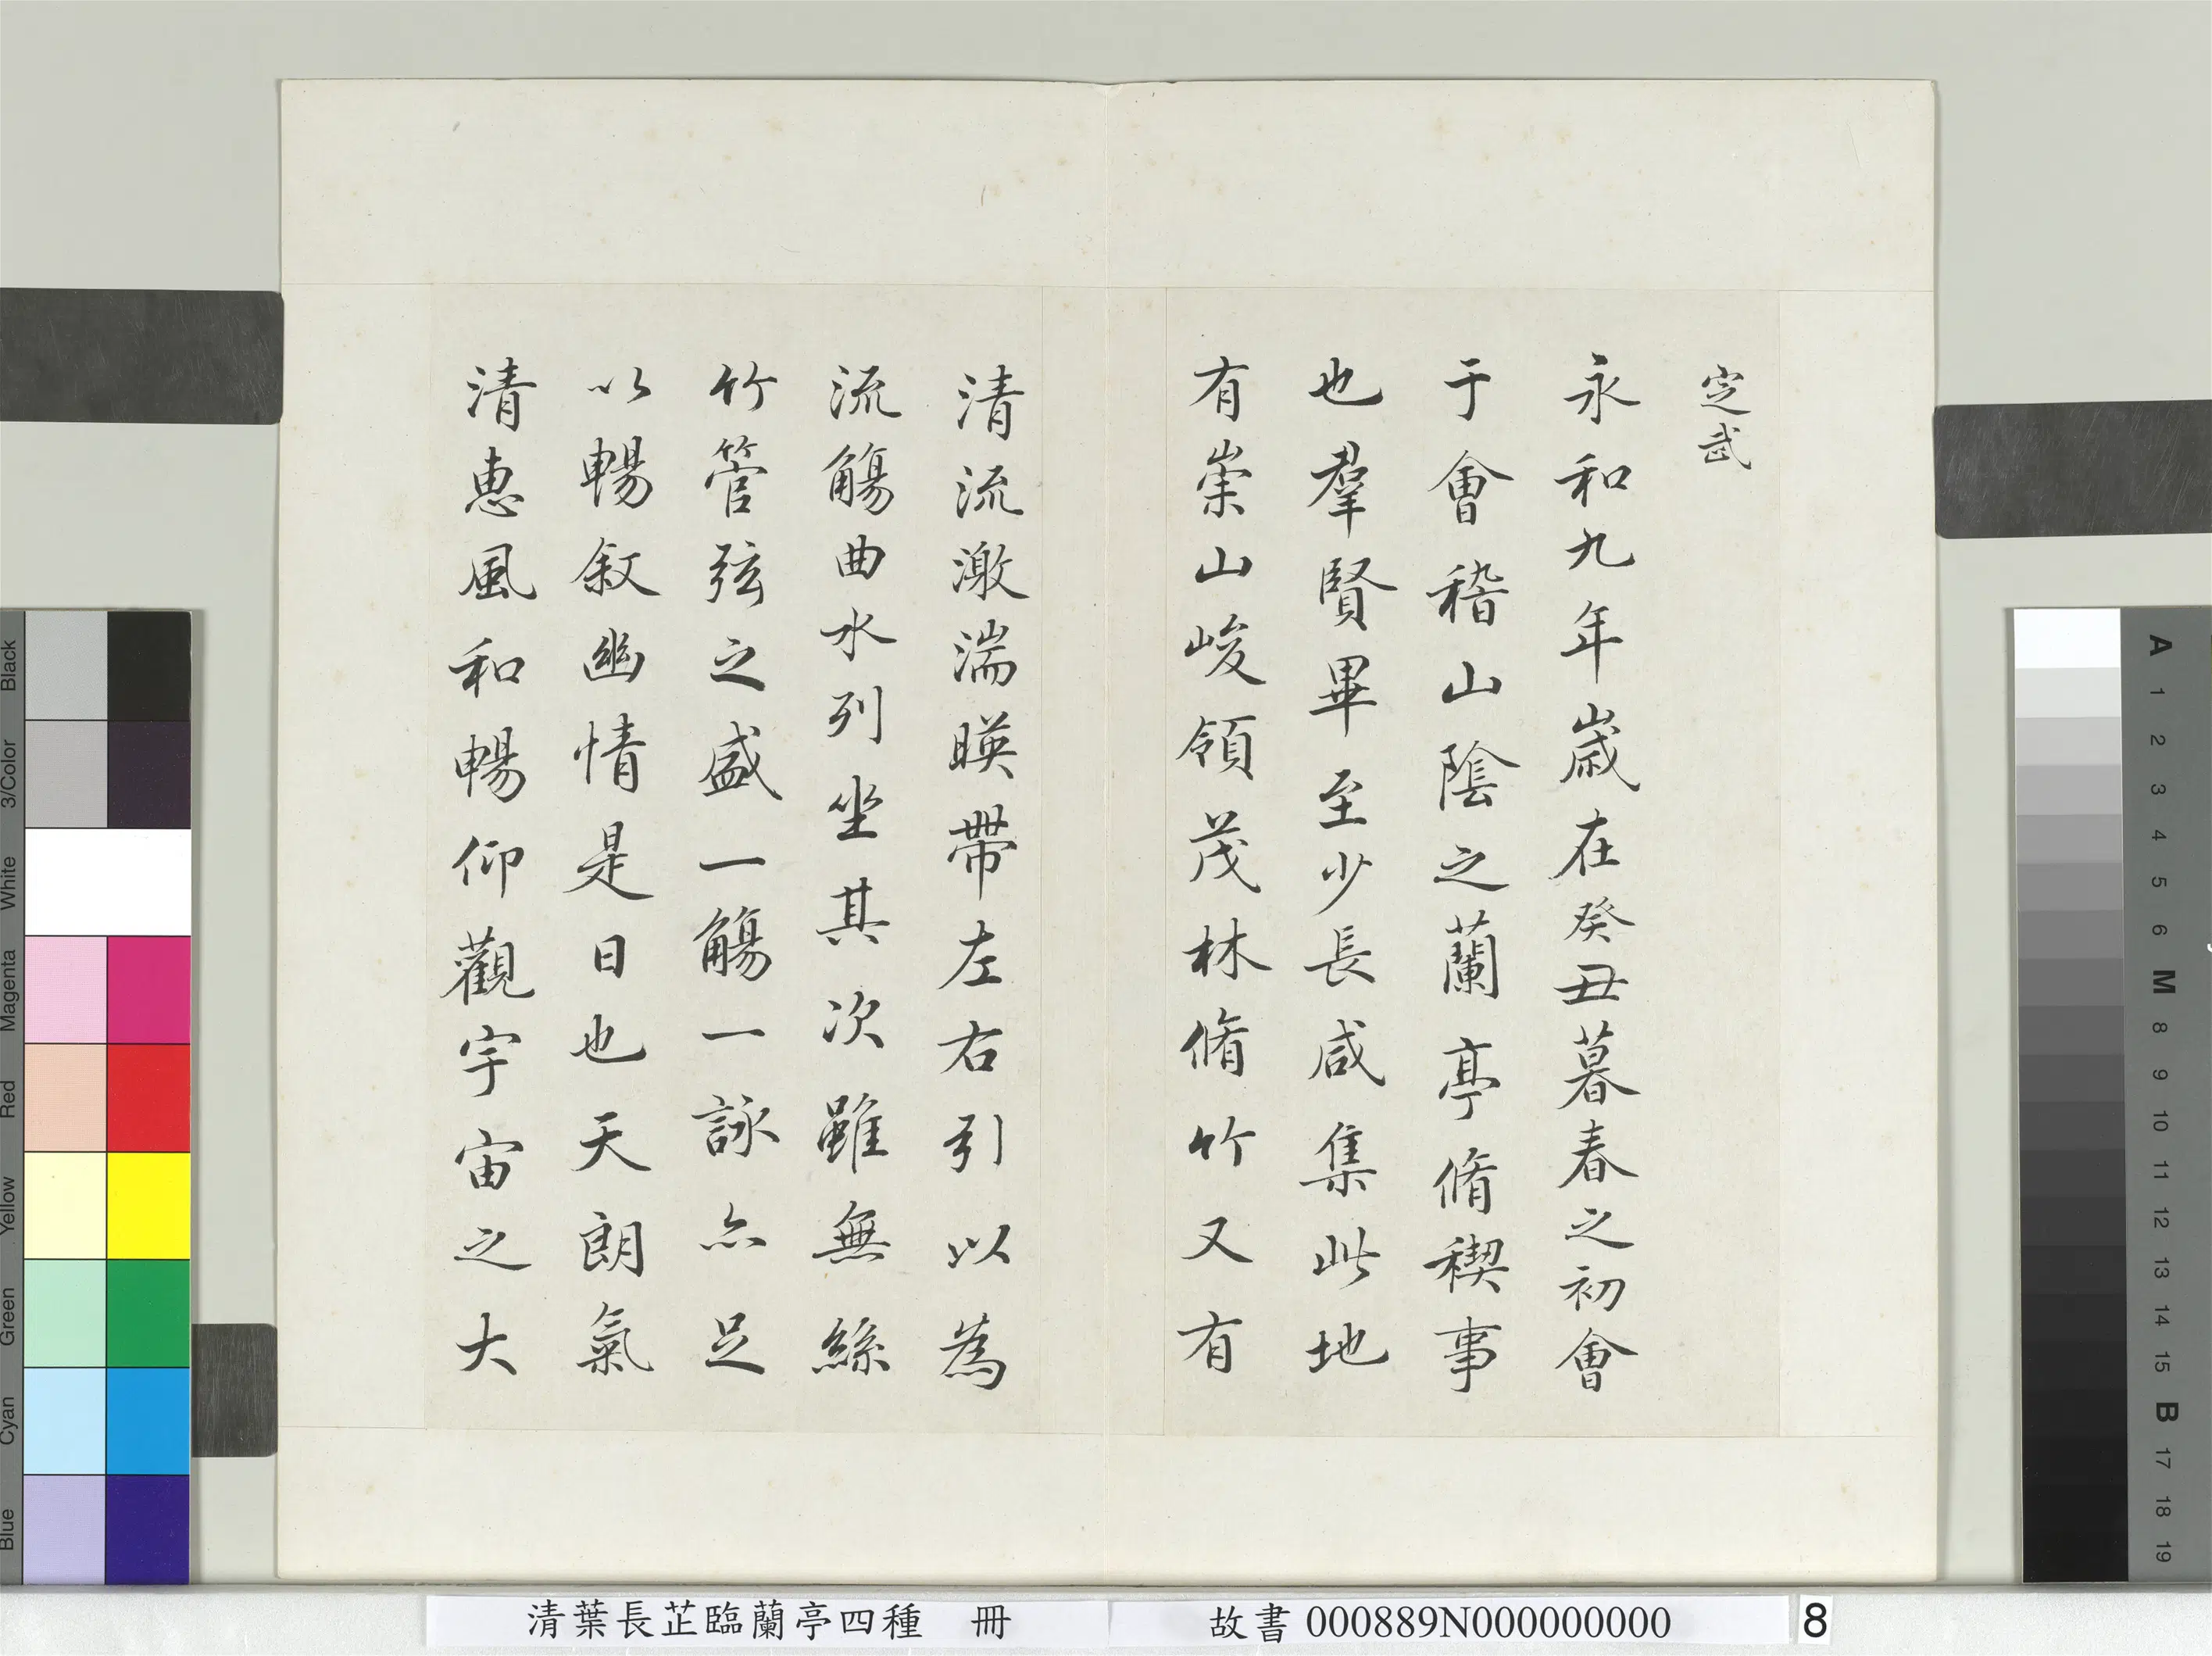 定武
永和九年歲在癸丑暮春之初會
于會稽山陰之蘭亭脩稧事
也羣賢畢至少長咸集此地
有崇山峻領茂林脩竹又有
清流激湍暎帶左右引以為
流觴曲水列坐其次雖無絲
竹管弦之盛一觴一詠亦足
以暢敘幽情是日也天朗氣
清惠風和暢仰觀宇宙之大
清葉長芷臨蘭亭四種 冊
故書000889N000000000
8
Black
3/Color
White
Magenta
Red
Yellow
Green
Cyan
Blue
A
1
2
3
4
5
6
M
8
9
10
11
12
13
14
15
B
17
18
19